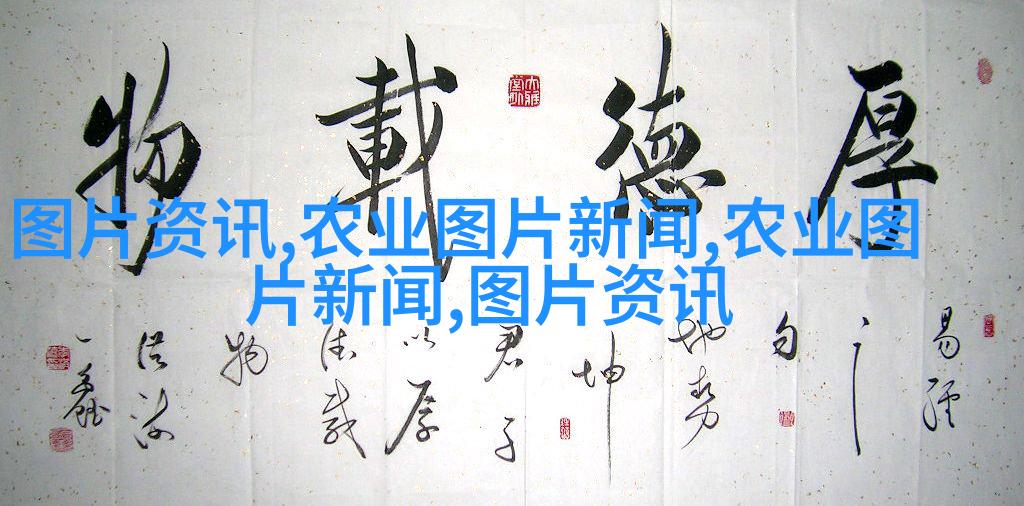 厚德載物
图片资讯,农业图片新闻,农业图
片新闻,图片资讯
易经
之
句
地势
坤
君子
以厚
德载
物